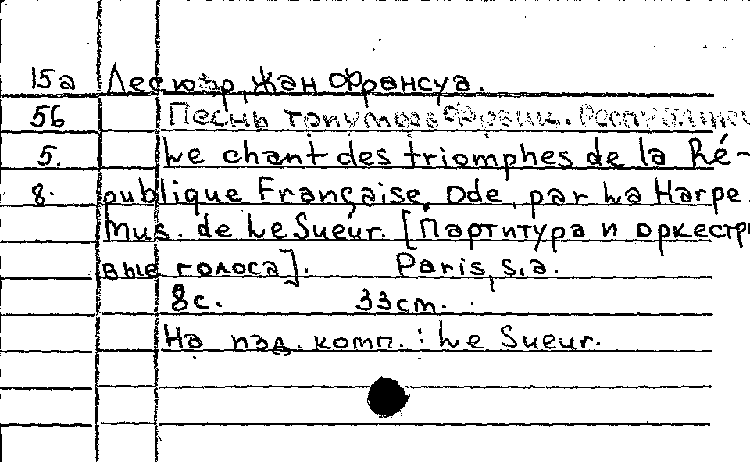 15а Лесюэр, Жан Франсуа.
56 Песнь триумфов Франц. Республики
5. Le chant des triomphes de la Ré-
8. publique Française. Ode, par La Harpe.
Mus. de Le Sueur. [Партитура и оркестро
вые голоса]. Paris, s.a.
8с. 33cm.
На изд. комп.: Le Sueur.